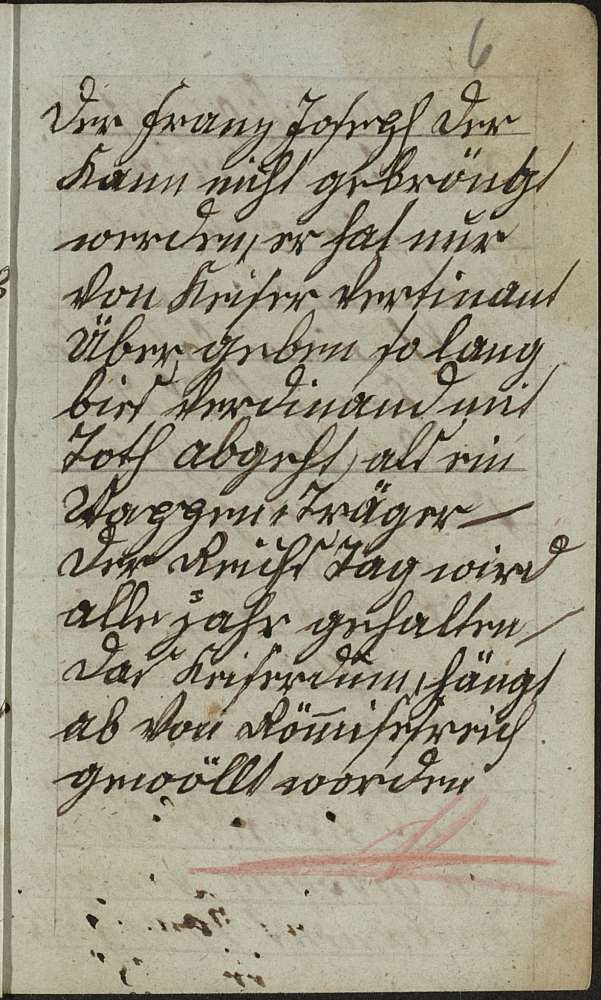 6
Der Franz Joseph der
Kann nicht gekröngt
werden, er hat nur
Von Keiser Vertinant
Über geben so lang
bies Verdinand mit
Toth abgeht, als ein
Wappen Träger
Der Reichs Tag wird
alle Jahr gehalten
Das Keiserdum, hängt
ab Von Römischreich
gewöllt worden